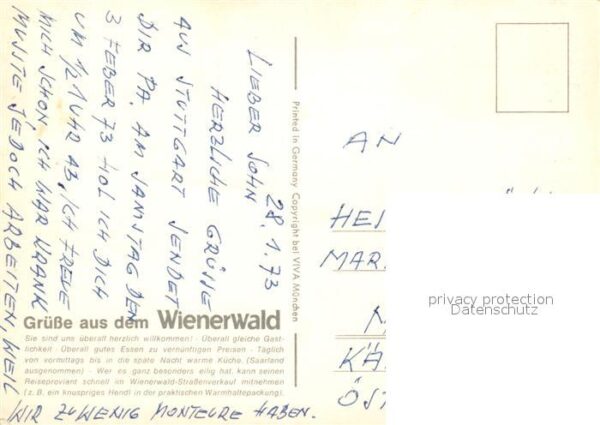 28.1.73
LIEBER SOHN
HERZLICHE GRÜSSE
AUS STUTTGART SENDET
DIR PA. AM SAMSTAG DEN
3 FEBER 73 HOL ICH DICH
UM 1/2 1 UHR AB, ICH FREUE
MICH SCHON, ICH WAR KRANK
MUSSTE JEDOCH ARBEITEN, WEIL
WIR ZU WENIG MONTEURE HABEN.
Grüße aus dem Wienerwald
Sie sind uns überall herzlich willkommen! - Überall gleiche Gast-
lichkeit - Überall gutes Essen zu vernünftigen Preisen - Täglich
von vormittags bis in die späte Nacht warme Küche. (Saarland
ausgenommen) - Wer es ganz besonders eilig hat, kann seinen
Reiseproviant schnell im Wienerwald-Straßenverkauf mitnehmen
(z. B. ein knuspriges Hendl in der praktischen Warmhaltepackung).
Printed in Germany Copyright bei VIVA München
AN
HEI
MAR.
KÄ
ÖST
privacy protection
Datenschutz